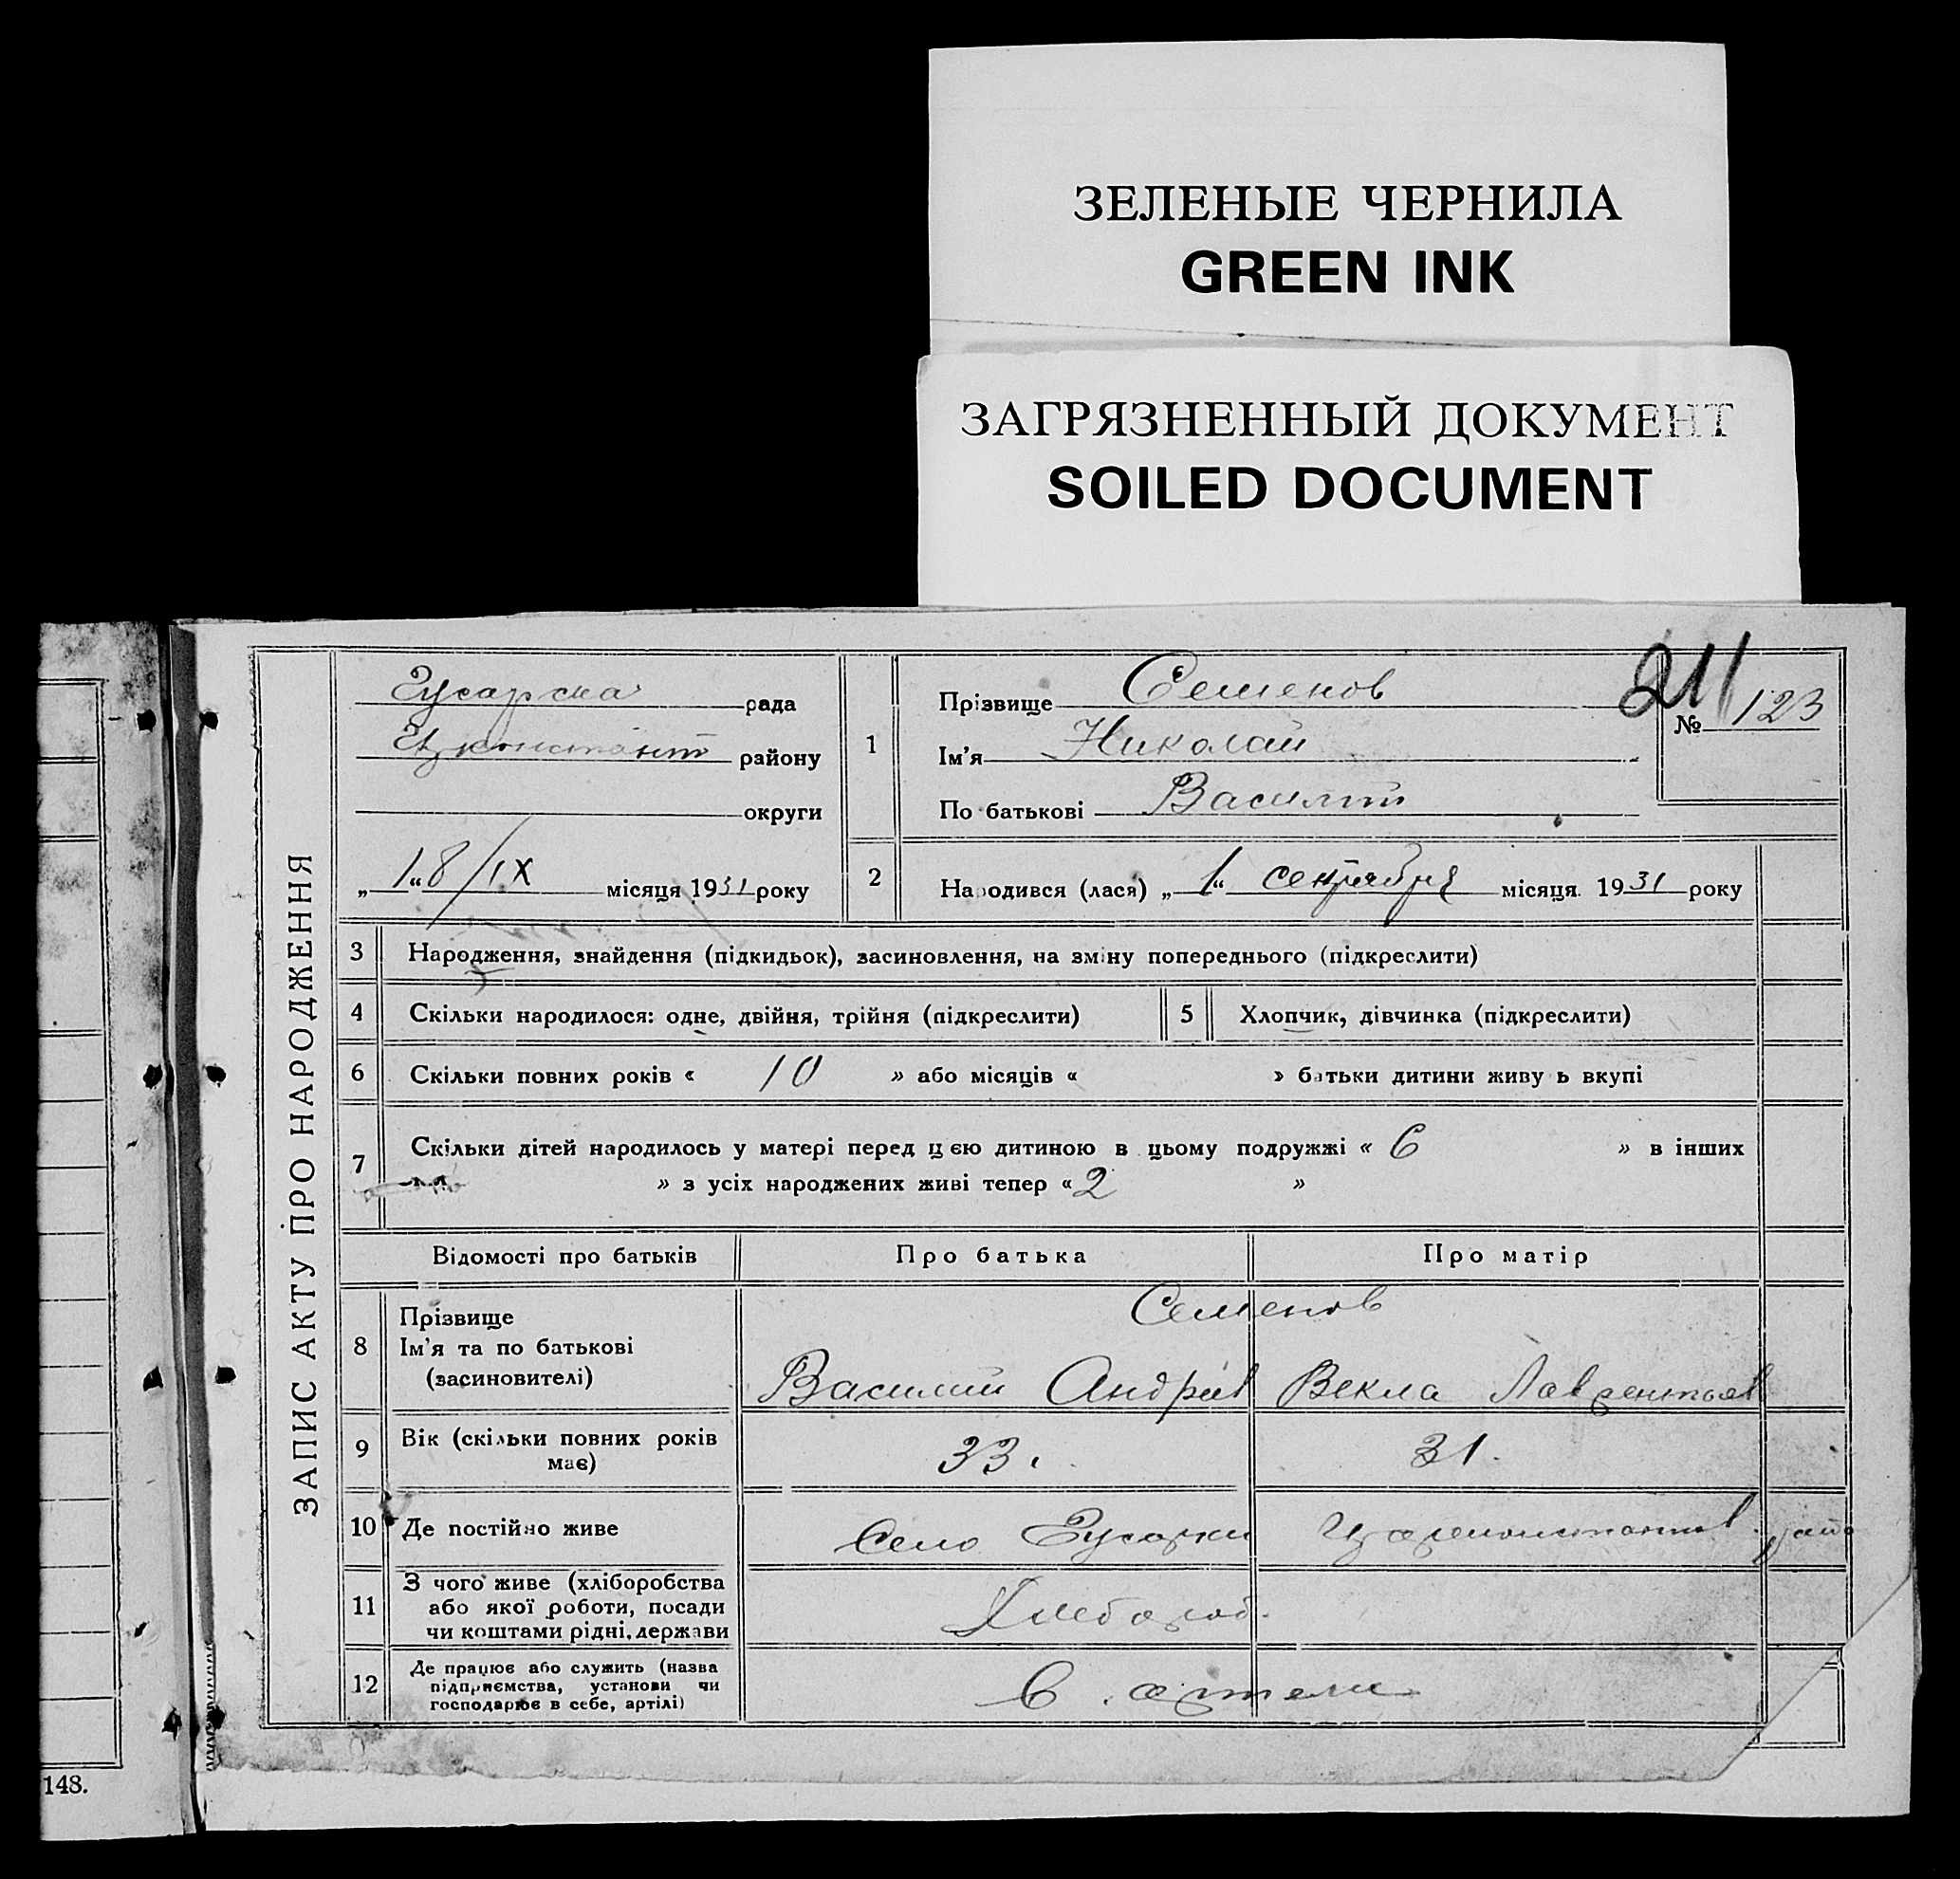 ЗЕЛЕНЫЕ ЧЕРНИЛА
GREEN INK
ЗАГРЯЗНЕННЫЙ ДОКУМЕНТ
SOILED DOCUMENT
ЗАПИС АКТУ ПРО НАРОДЖЕННЯ
Гусарска рада
району
округи
„18/IX“ місяця 1931 року
1
Прізвище Семенов
Ім'я Николай
По батькові Василий
211
№ 123
2 Народився (лася) „1“ сентября місяця 1931 року
3 Народження, знайдення (підкидьок), засиновлення, на зміну попереднього (підкреслити)
4 Скільки народилося: одне, двійня, трійня (підкреслити) 5 Хлопчик, дівчинка (підкреслити)
6 Скільки повних років « 10 » або місяців « » батьки дитини живуть вкупі
7 Скільки дітей народилось у матері перед цією дитиною в цьому подружжі « 6 » в інших
» з усіх народжених живі тепер « 2 »
Відомості про батьків Про батька Про матір
8 Прізвище
Ім'я та по батькові
(засиновителі)
Семенов
Василий Андріїв Векла Лаврентьев
9 Вік (скільки повних років
має)
33. 31.
10 Де постійно живе Село Гусарки
11 З чого живе (хліборобства
або якої роботи, посади
чи коштами рідні, держави
Хлебороб.
12 Де працює або служить (назва
підприємства, установи чи
господарює в себе, артілі)
в артели
148.